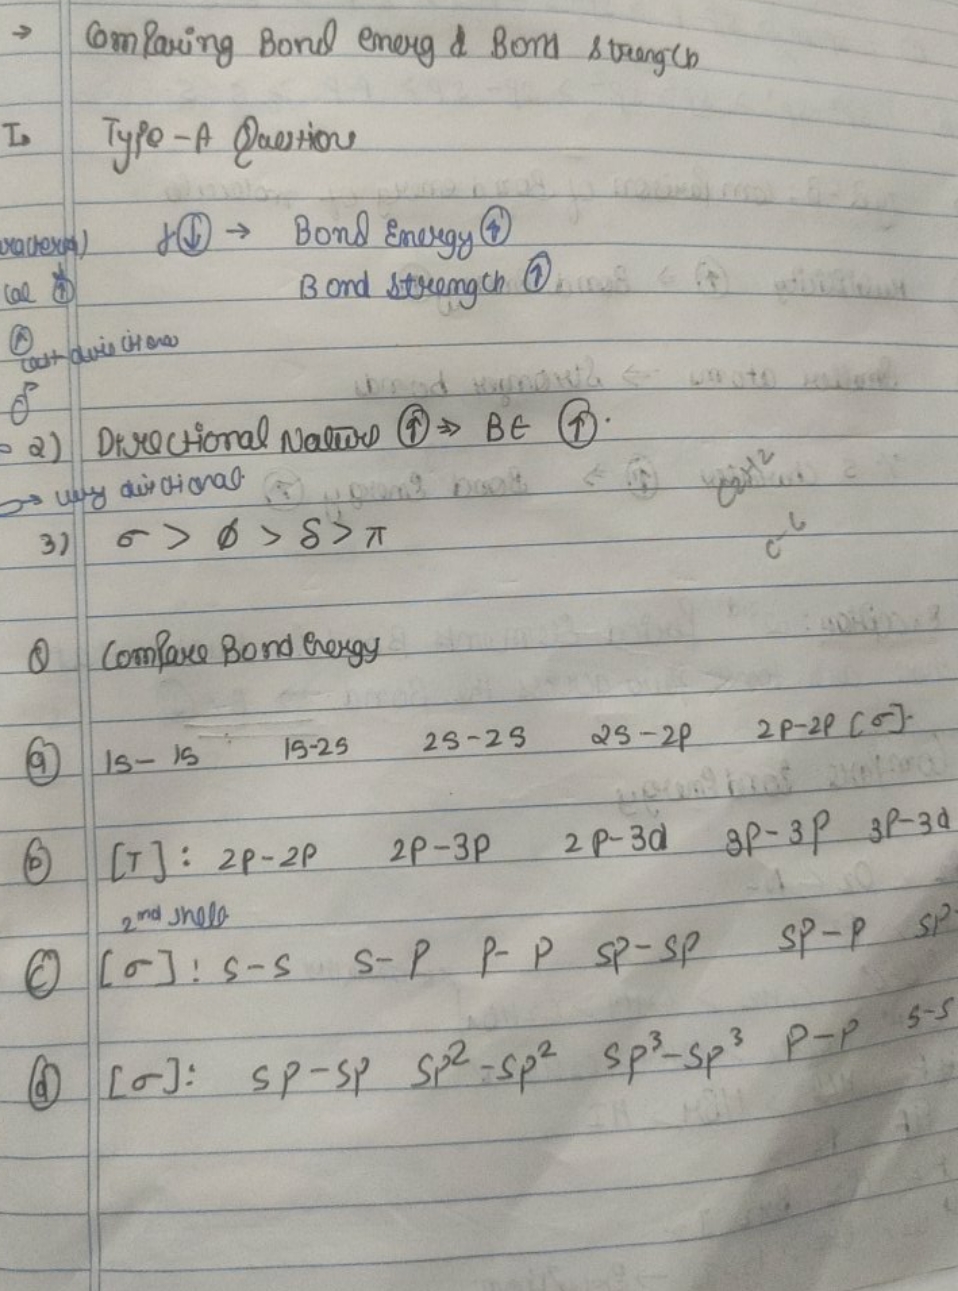 → Comparing Bond energ & Bond strength
I. Type-A Question
↓ → Bond Energy ↑
Bond strength ↑
2) Directional Nature ↑ ⇒ BE ↑.
→ very directional
3) σ > ϕ > δ > π
Q Compare Bond Energy
(a) 1s-1s 1s-2s 2s-2s 2s-2p 2p-2p [σ].
(b) [π]: 2p-2p 2p-3p 2p-3d 3p-3p 3p-3d
2nd shell
(c) [σ]: s-s s-p p-p sp-sp sp-p sp
(d) [σ]: sp-sp sp²-sp² sp³-sp³ p-p s-s